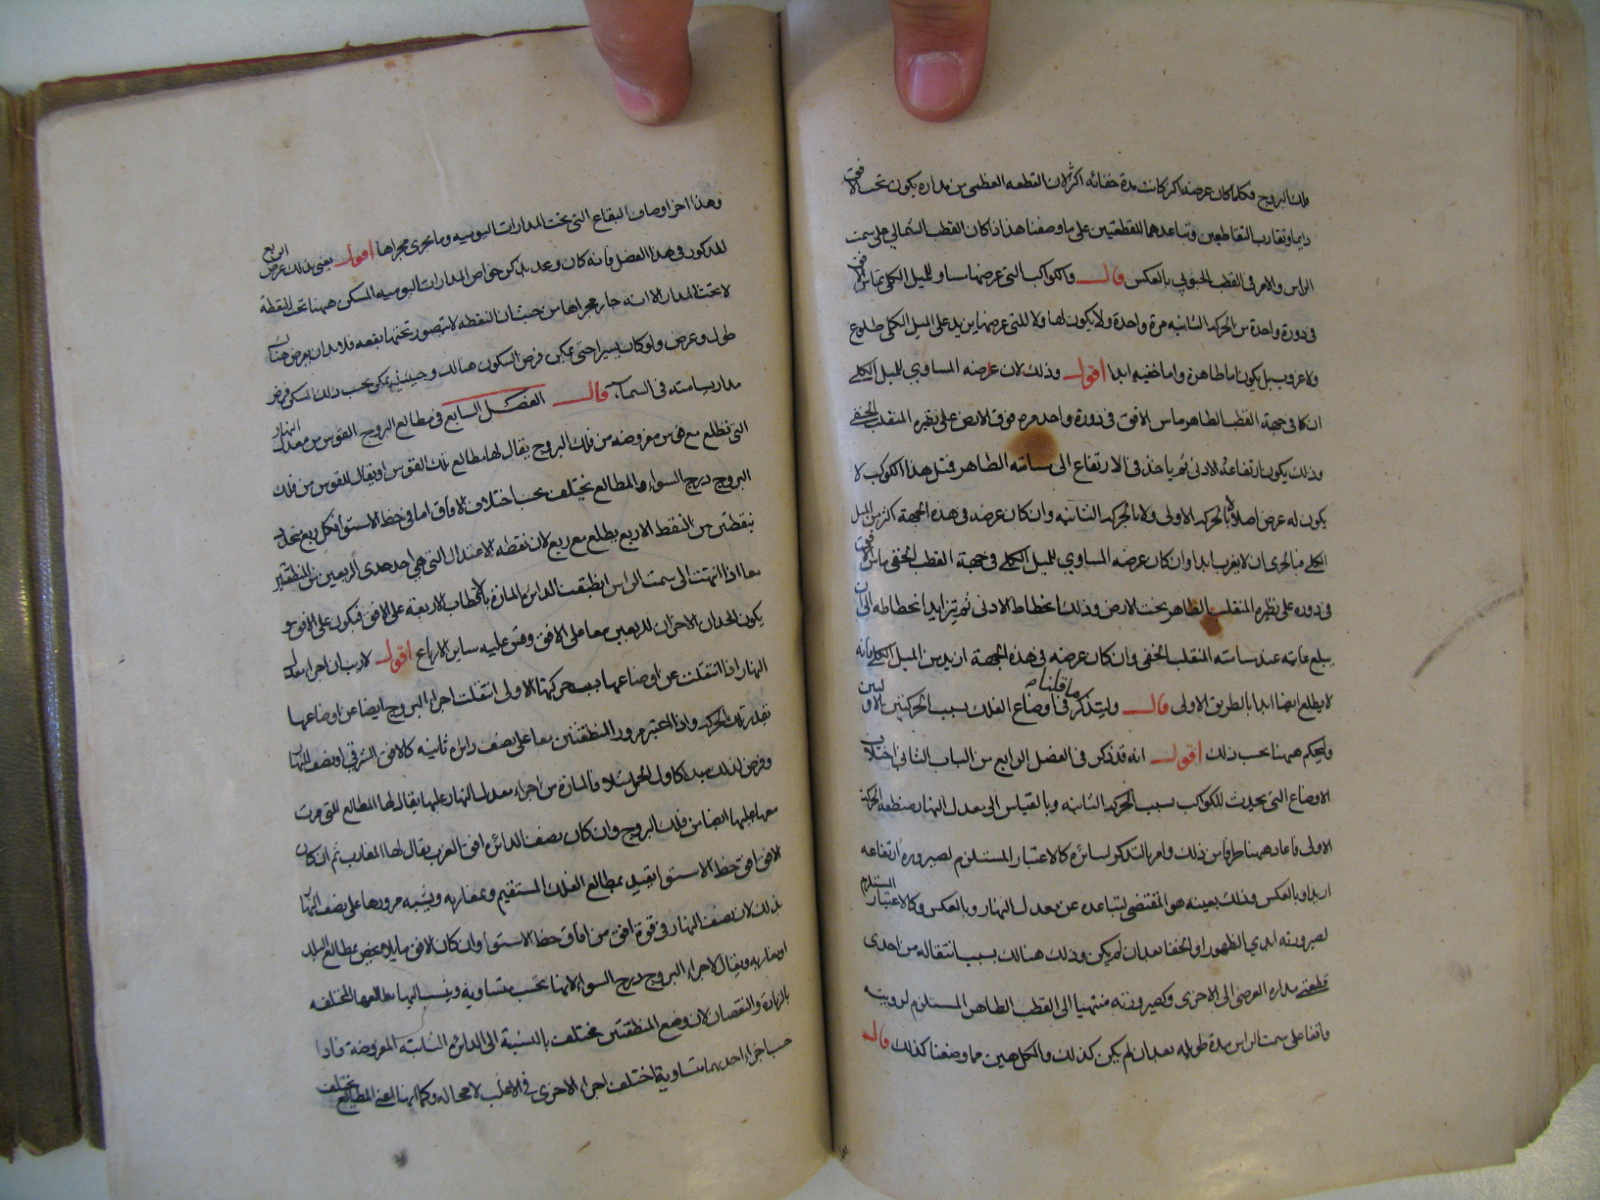 فلك البروج فكلما كان عرضه اكثر كانت مدة خفائه اكثر لان القطعه العظمى من مداره يكون تحت الافق
دايما وتقارب التقاطعين وتباعدهما للقطعتين على ما وصفنا هذا اذا كان القطب الشمالي على سمت
الراس والامر في القطب الجنوبي بالعكس قال والكواكب التى عرضها مساو للميل الكلى تماس الافق
فى دورة واحدة من الحركه الثانيه مرة واحدة ولا يكون لها ولا للتى عرضها يزيد على الميل الكلى طلوع
ولا غروب بل يكون اما ظاهرة واما خفيه ابدا اقول وذلك لان عرضه المساوي للميل الكلى
ان كان فى جهة القطب الظاهر ماس الافق فى دورة واحده مره فوق الارض على نظيره المنقلب الخفى
وذلك يكون ارتفاعه الادنى ثم ياخذ فى الارتفاع الى مسامته الظاهر فمثل هذا الكوكب لا
يكون له عرض اصلا لا بالحركه الاولى ولا بالحركه الثانيه وان كان عرضه فى هذه الجهة اكثر من الميل
الكلى فبالحرى ان لا يغرب ابدا وان كان عرضه المساوي للميل الكلى فى جهة القطب الخفى ماس الافق
فى دوره على نظيره المنقلب الظاهر تحت الارض وذلك انحطاط الادنى ثم يتزايد انحطاطه الى ان
يبلغ غايته عند مسامته المنقلب الخفى وان كان عرضه فى هذه الجهة ازيد من الميل الكلى فانه
لا يطلع ايضا ابدا بالطريق الاولى قال وليتذكر ما قلناه فى اوضاع الفلك بسبب الحركتين الاوليين
وليحكم ههنا بحسب ذلك اقول انه قد ذكر فى الفصل الرابع من الباب الثانى اختلاف
الاوضاع التى يحدث للكواكب بسبب الحركه الثانيه وبالقياس الى معدل النهار منطقه الحركه
الاولى فاعاد ههنا طرفا من ذلك وامر بالتذكر لسائره كالاعتبار المستلزم لصيروره ارتفاعه
ازيد او بالعكس وذلك بعينه هو المقتضى لتباعده عن معدل النهار وبالعكس وكالاعتبار المستلزم
لصيرورته ابدي الظهور او الخفا بعد ان لم يكن وذلك هنالك بسبب انتقاله من احدى
قطعتى مداره العرضى الى الاخرى وكصيرورته منتهيا الى القطب الظاهر المستلزم لرويته
واقفا على سمت الراس مدة طويله بعد ان لم يكن كذلك والكل مما وصفنا كذلك قال
وهذا اخر اوصاف البقاع التى تحت المدارات اليوميه وما يجرى مجراها اقول يعنى بذلك عرض الربع
المذكور فى هذا الفصل فانه كان وعد بذكر خواص المدارات اليوميه المسكن ههنا تحت النقطة
لا تحت المدار الا انه جار مجراها من حيث ان النقطه لا يتصور تحتها بقعه فلابد ان يعرض هناك
طول وعرض ولو كان يسيرا حتى يمكن فرض السكون هنالك وحينئذ يمكن بحسب ذلك المسكن فرض
مدار يسامته فى السماء قال الفصل السابع فى مطالع البروج القوس من معدل النهار
التى تطلع مع قوس مفروضه من فلك البروج يقال لها مطالع تلك القوس او يقال للقوس من فلك
البروج درج السواء والمطالع يختلف بحسب اختلاف الافاق اما فى خط الاستوا فكل ربع يتحدد
بنقطتين من النقط الاربع يطلع مع ربع لان نقطه الاعتدال التى هى احد حدى الربعين من المنطقتين
معا اذا انتهت الى سمت الراس انطبقت الدائرة المارة بالاقطاب الاربعه على الافق فيكون على الافق و
يكون الحدان الاخران للربعين معا على الافق وقس عليه ساير الارباع اقول لا ريب ان اجزاء معدل
النهار اذا انتقلت عن اوضاعها بسبب حركتها الاولى انتقلت اجزاء البروج ايضا عن اوضاعها
بقدر تلك الحركه واذا اعتبر مرور المنطقتين معا على نصف دائره ثانيه كالافق الشرقى او نصف النهار
وفرض لذلك مبدا كاول الحمل مثلا فالمارة من اجزاء معدل النهار عليها يقال لها المطالع للتى مرت
معها عليها ايضا من فلك البروج وان كان نصف الدائره افق الغرب يقال لها المغارب ثم ان كان
الافق افق خط الاستوا يقيد بمطالع الفلك المستقيم وبمغاربه ويشبه مرورها على نصف النهار
بذلك لان نصف النهار فى قوة افق من افاق خط الاستوا وان كان الافق مايلا يخص بمطالع البلد
او مغاربه ويقال لاجزاء البروج درج السواء لانها تحسب متساويه وينسب اليها مطالعها المختلفه
بالزيادة والنقصان لان وضع المنطقتين مختلف بالنسبة الى الدائره الثابته المفروضة فاذا
حسب اجزاء احدهما متساوية اختلف اجزاء الاخرى فى الاغلب لا محاله وكما انها اعنى المطالع يختلف